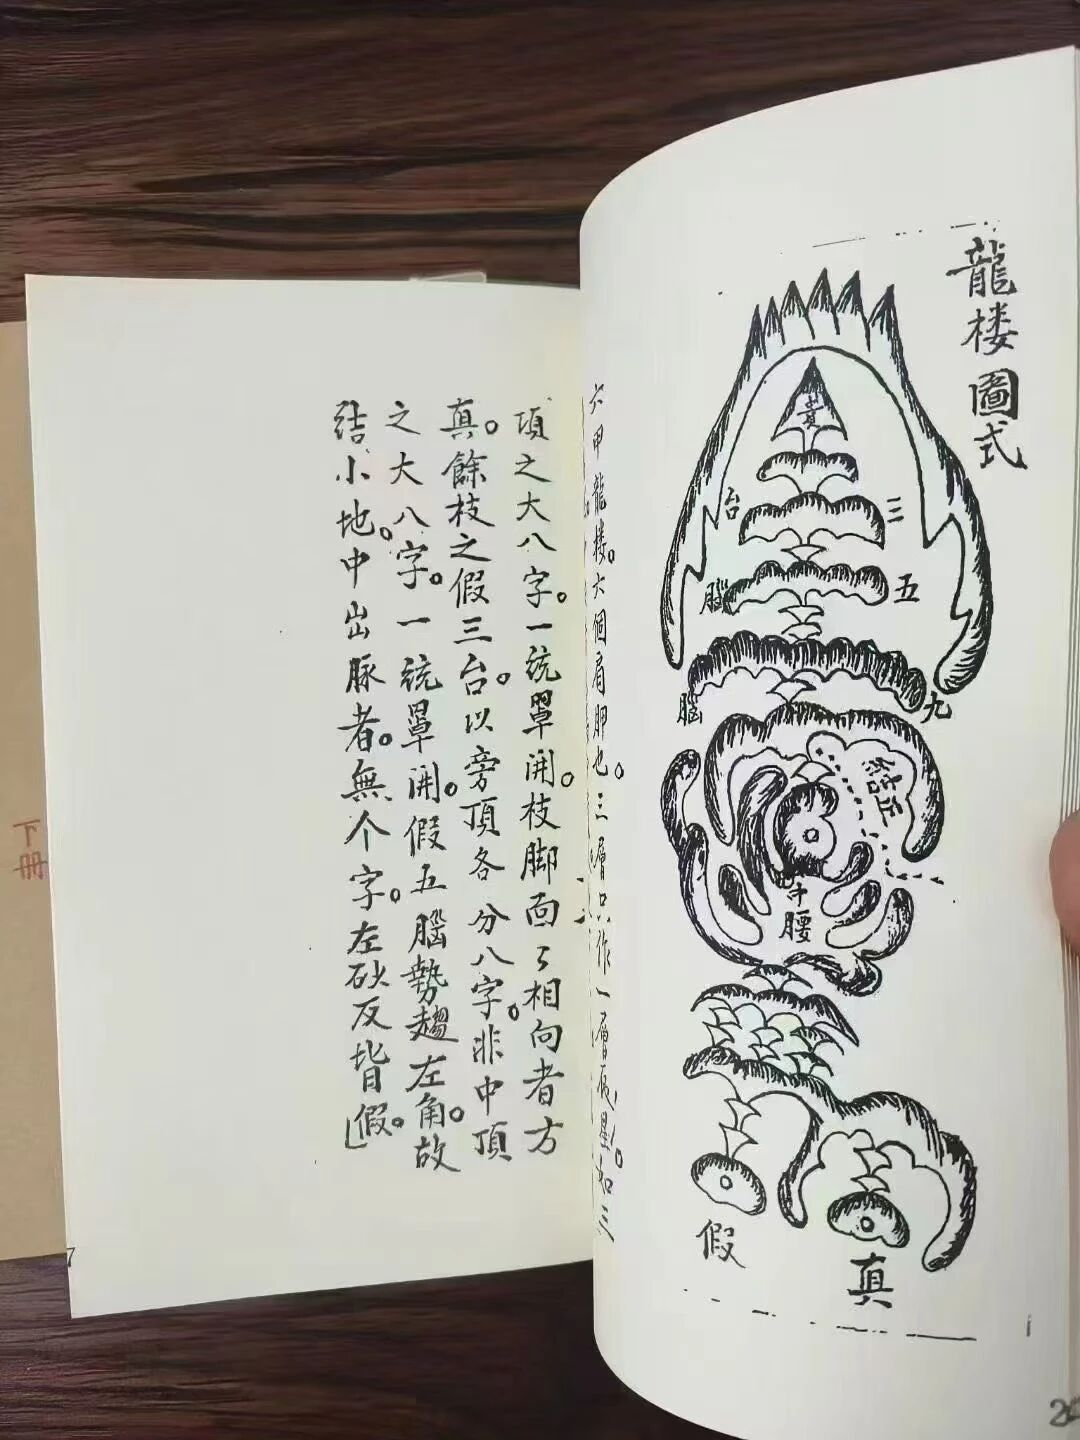 龍楼圖式
貴
三台
五腦
九腦
正结
半腰
假
真
六甲龍楼。六個肩胛也。三層只作一層砭星。如三
項之大八字。一統罩開。枝脚面々相向者方
真。餘枝之假三台。以旁頂各分八字。非中頂
之大八字。一統罩開。假五腦勢趨左角。故
结小地。中出脉者。無个字。左砂反背假。
下册
7
1